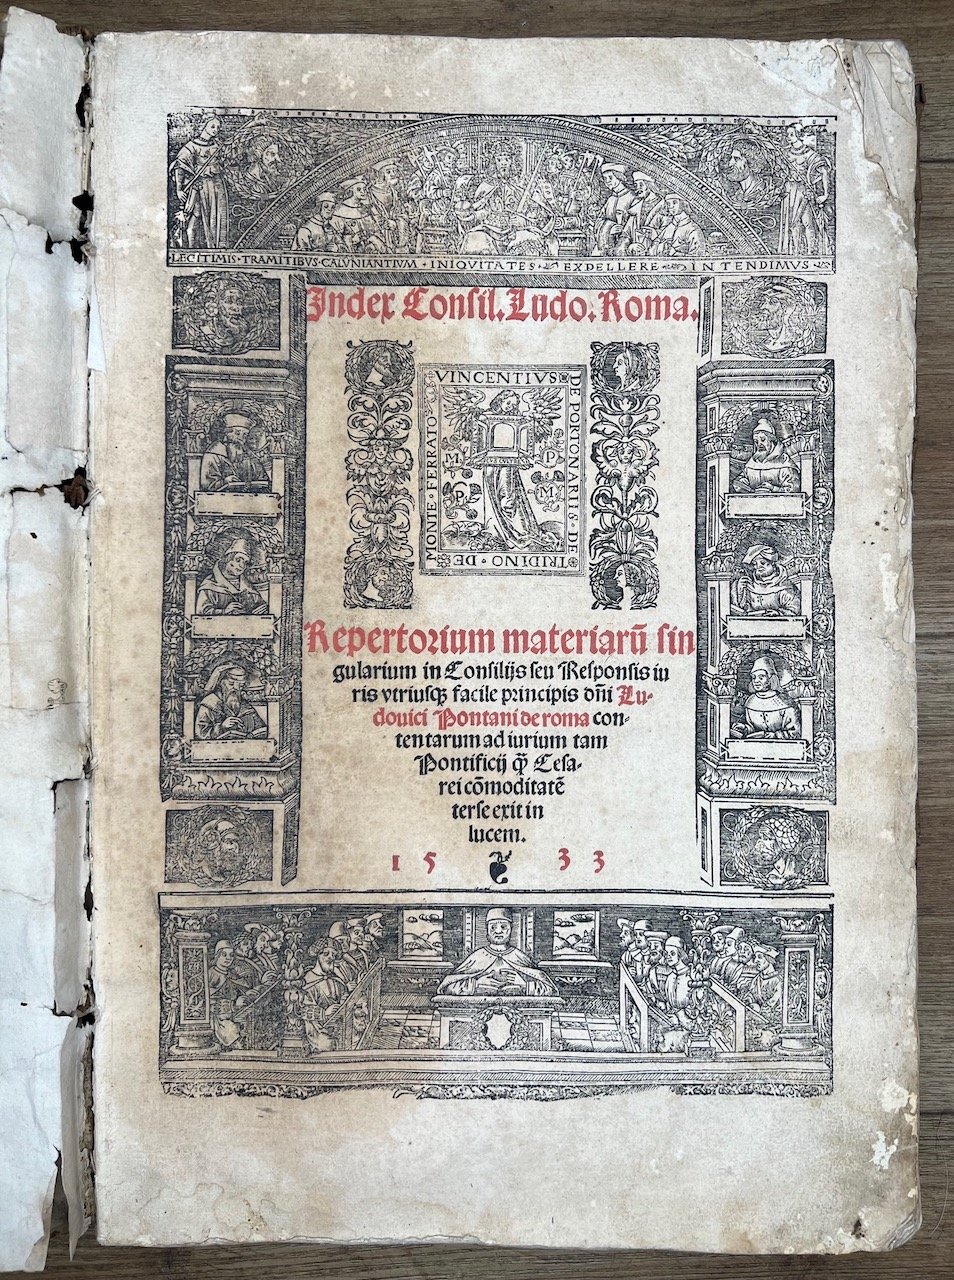 LEGITIMIS · TRAMITIBVS · CALVNIANTIVM · INIQVITATES · EXPELLERE · INTENDIMVS
Index Consil. Ludo. Roma.
VINCENTIVS
DE · PORTONARIIS · DE
TRIDINO · DE
MONTE · FERRATO
M P
P M
Repertorium materiarū sin
gularium in Consilijs seu Responsis iu
ris vtriusq̃ facile principis dn̄i Lu-
douici Pontani de roma con-
tentarum ad iurium tam
Pontificij q̃ Cesa-
rei cōmoditatē
terse exit in
lucem.
1533